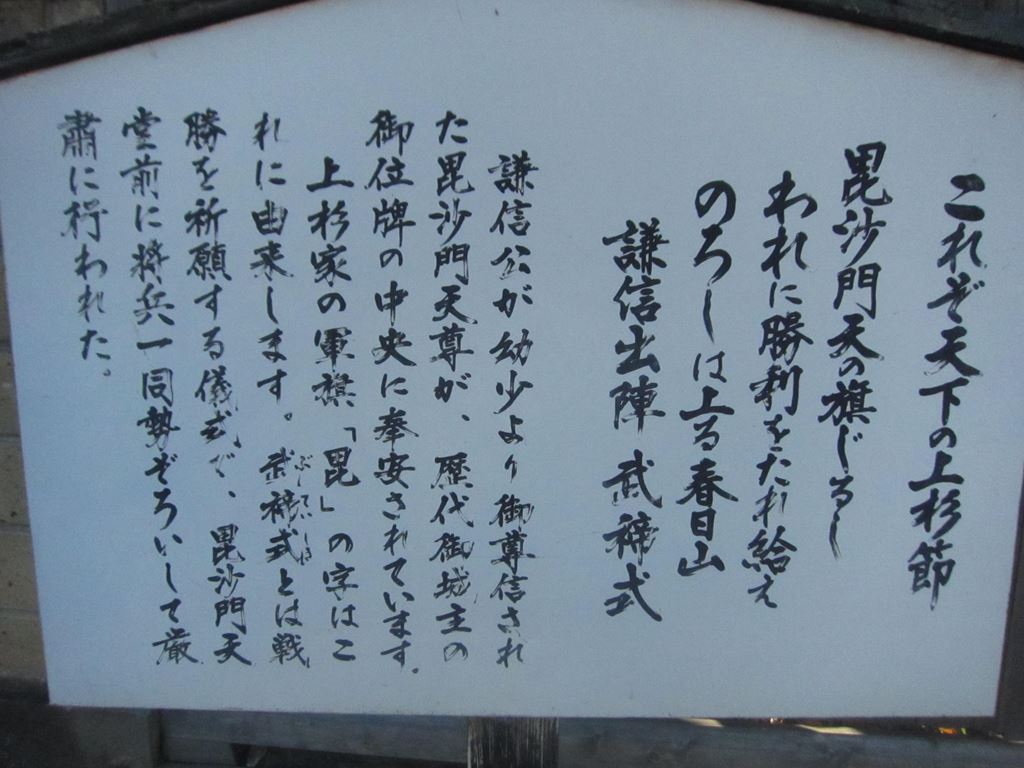 これぞ天下の上杉節
毘沙門天の旗じるし
われに勝利をたれ給え
のろしは上る春日山
謙信出陣 武禘式
謙信公が幼少より御尊信され
た毘沙門天尊が、歴代御城主の
御位牌の中央に奉安されています。
上杉家の軍旗「毘」の字はこ
れに由来します。武禘式とは戦
ぶていしき
勝を祈願する儀式で、毘沙門天
堂前に将兵一同勢ぞろいして厳
粛に行われた。